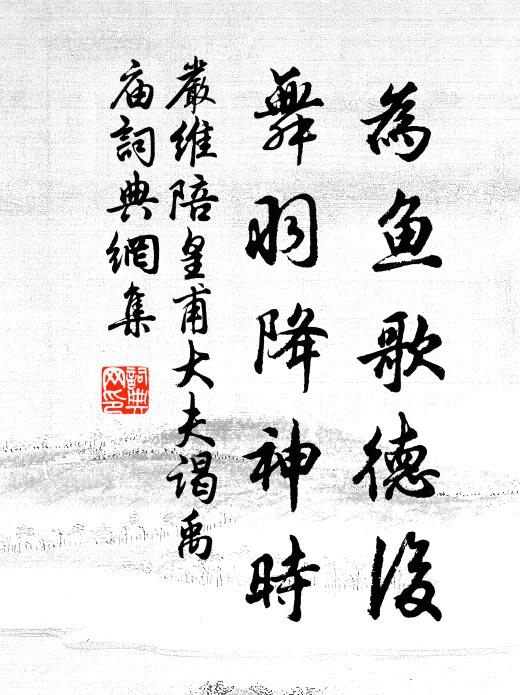 為魚歌德後
舞羽降神時
嚴維陪皇甫大夫謁禹
庙詞典網集
詞典網印